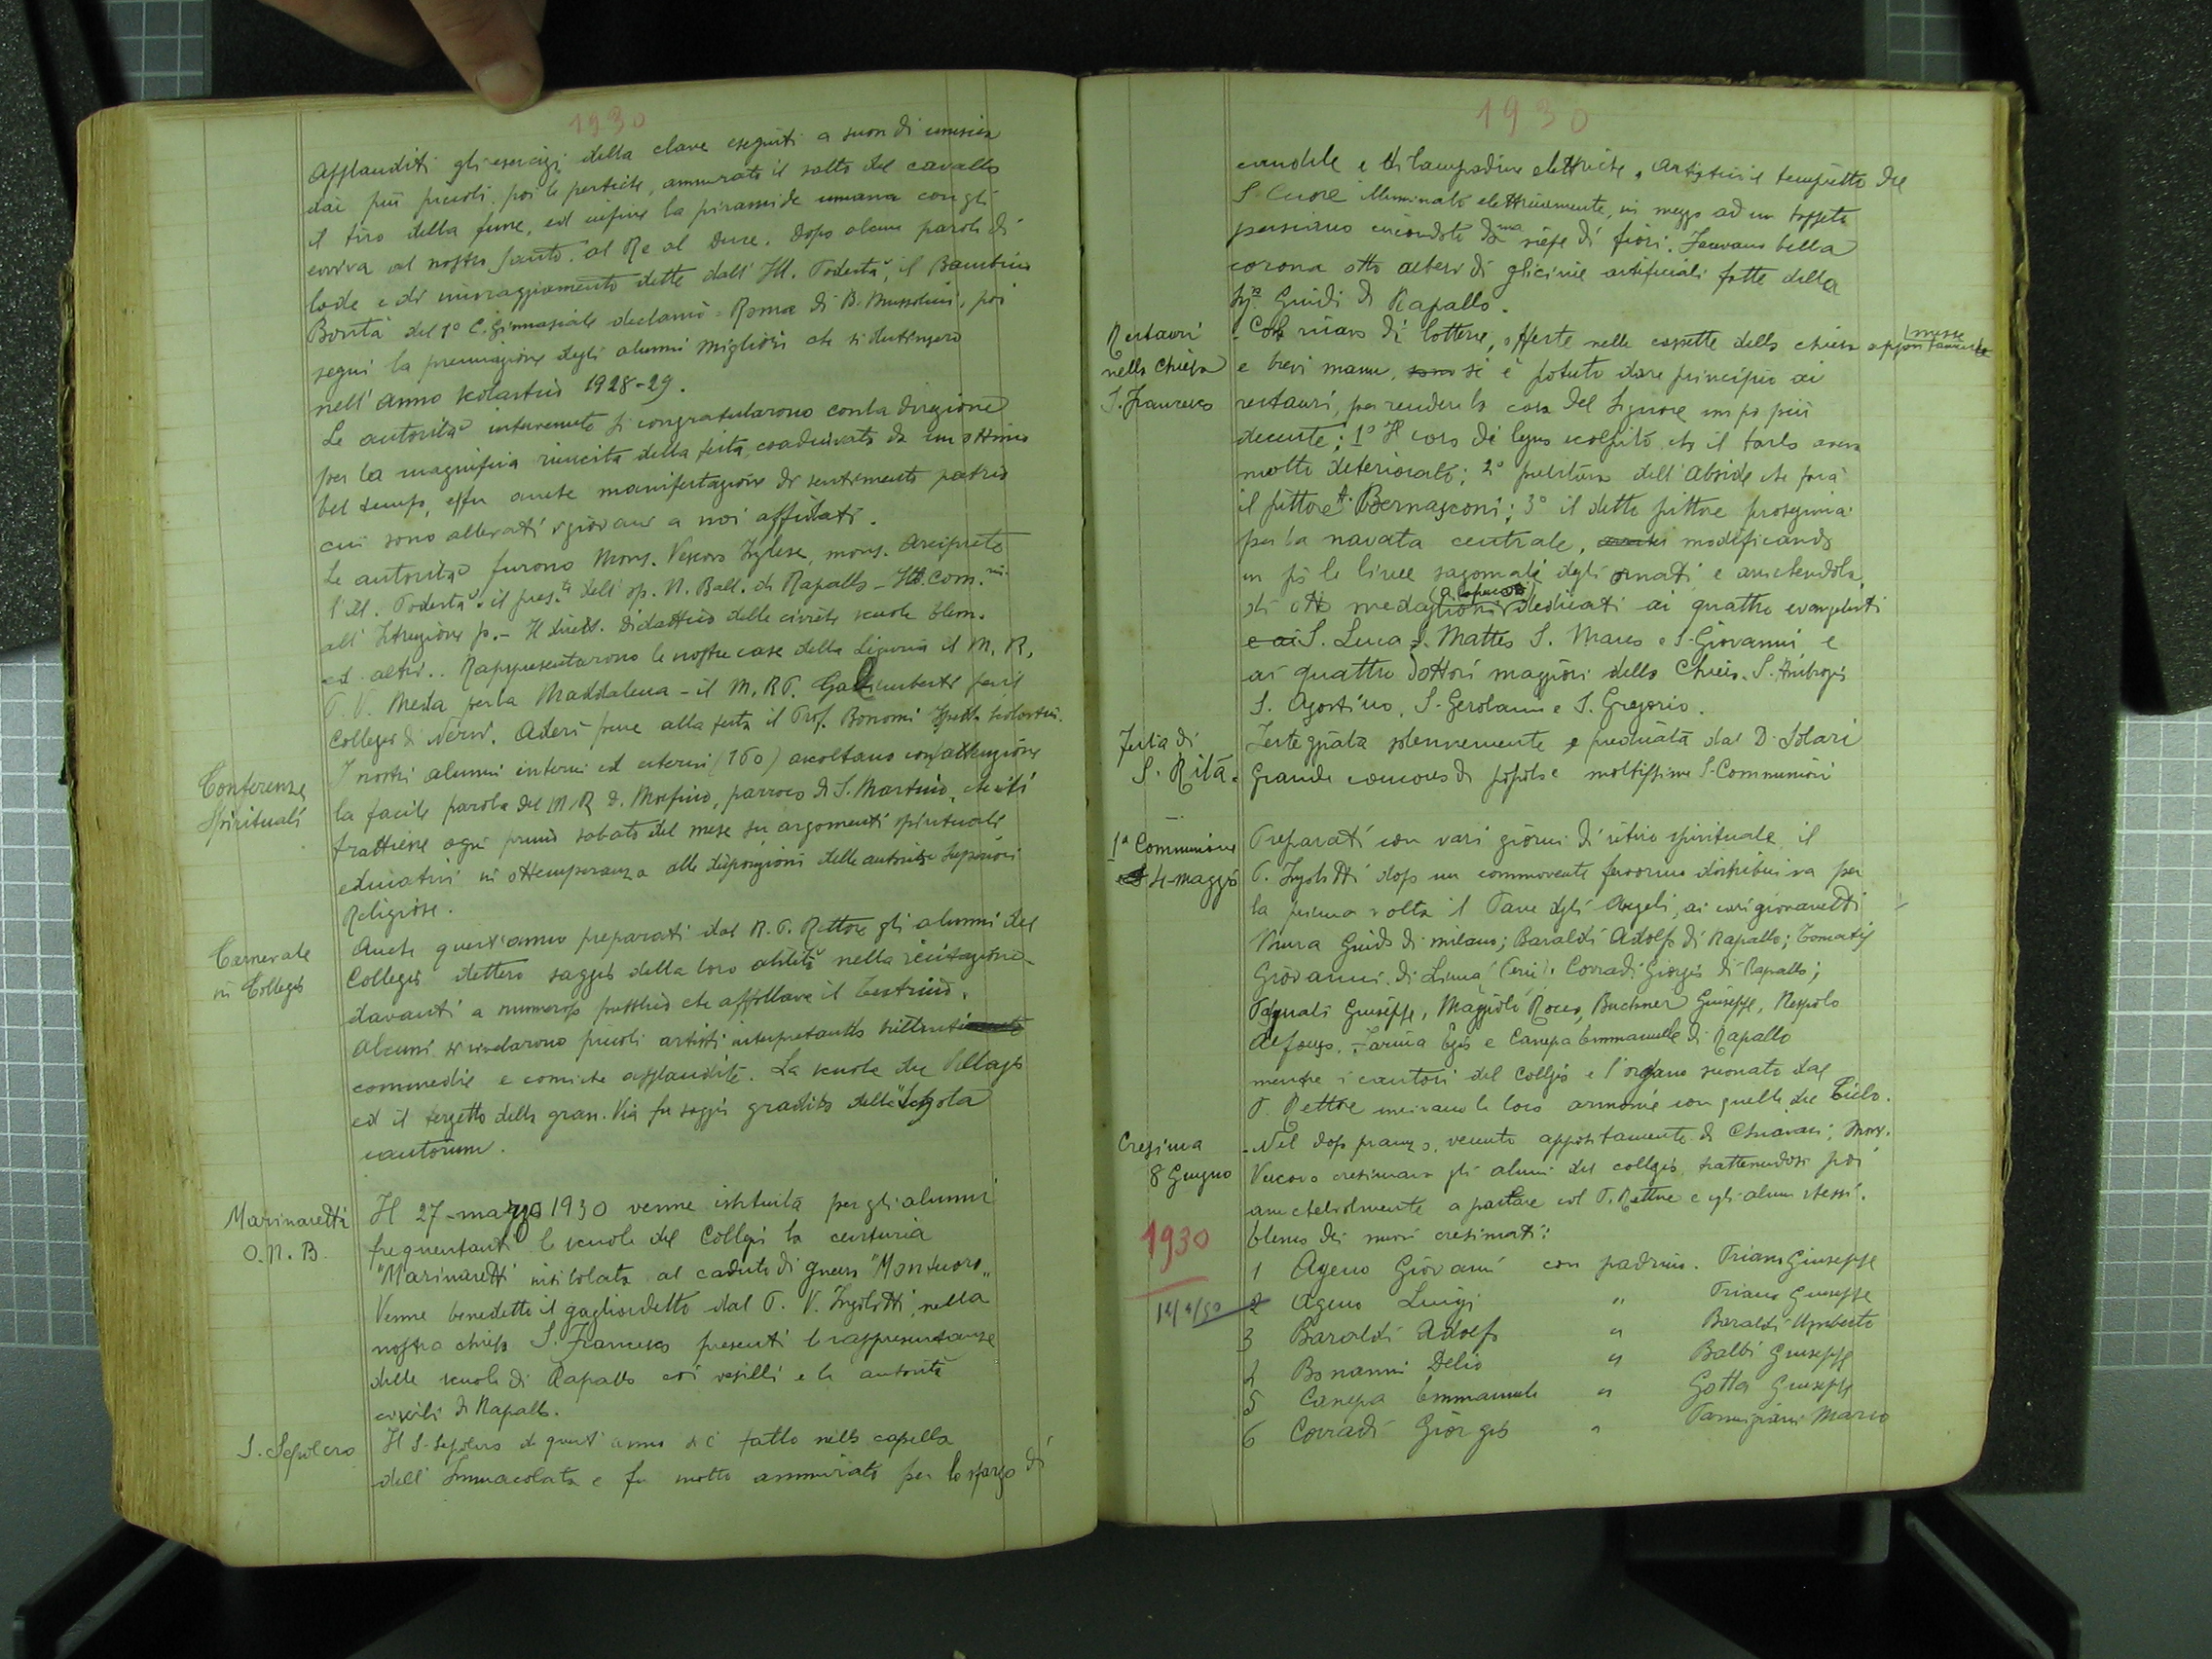 1930
Applauditi gli esercizi della clave eseguiti a suon di musica
dai più piccoli, poi le pertiche, ammirato il salto del cavallo
il tiro della fune, ed infine la piramide umana con gli
evviva al nostro Santo, al Re al Duce. Dopo alcune parole di
lode e di incoraggiamento dette dall' Ill. Podestà, il Bambino
Bontà del 1° C. Ginnasiale declamò = Roma di B. Mussolini, poi
seguì la premiazione degli alunni migliori che si distinsero
nell' anno scolastico 1928-29.
Le autorità intervenute si congratularono con la direzione
per la magnifica riuscita della festa, coadiuvata da un ottimo
bel tempo, e fu anche manifestazione di sentimento patrio
cui sono allevati i giovani a noi affidati.
Le autorità furono Mons. Vescovo Inglese, mons. Arciprete
l'Ill. Podestà, il pres.te dell' op. N. Bal. di Rapallo - Ill. Com.
all' Istruzione p. - Il dirett. Didattico delle civiche scuole Elem.
ed altri.. Rappresentarono le nostre case della Liguria il M. R.
P. V. Meda per la Maddalena - il M. R. P. Galimberti per il
Collegio di Nervi. Aderì pure alla festa il Prof. Bonomi Ispett. Scolastico.
Conferenze
Spirituali
I nostri alunni interni ed esterni (160) ascoltano con attenzione
la facile parola del M. R. D. Morfino, parroco di S. Martino, che li
trattiene ogni primo sabato del mese su argomenti spirituali
educativi in ottemperanza alle disposizioni delle autorità Superiori
Religiose.
Carnevale
in Collegio
Anche quest'anno preparati dal R. P. Rettore gli alunni del
Collegio dettero saggio della loro abilità nella recitazione
davanti a numeroso pubblico che affollava il Teatrino.
Alcuni si rivelarono piccoli artisti interpretando brillanti
commedie e comiche applaudite. La scuola del Villaggio
ed il terzetto della gran. Via fu saggio gradito della "Schola
cantorum.
Marinaretti
O. N. B.
Il 27-marzo 1930 venne istituita per gli alunni
frequentanti le scuole del Collegio la centuria
"Marinaretti intitolata al caduto di guerra "Montuoro"
Venne benedetto il gagliardetto dal P. V. Ingolotti, nella
nostra chiesa S. Francesco presenti le rappresentanze
delle scuole di Rapallo coi vessilli e le autorità
civili di Rapallo.
S. Sepolcro
Il S. Sepolcro di quest' anno si è fatto nella capella
dell' Immacolata e fu molto ammirato per lo sfarzo di
1930
candele e di lampadine elettriche. Artistico il tempietto del
S. Cuore illuminato elettricamente, in mezzo ad un tappeto
persiano circondato da una siepe di fiori. Facevano bella
corona otto alberi di glicinie artificiali fatte dalla
Sig.ra Guidi di Rapallo.
Restauri
nella Chiesa
S. Francesco
- Col ricavo di lotterie, offerte nelle cassette della chiesa messe
e brevi manu, si è potuto dare principio ai
restauri, per rendere la casa del Signore un po più
decente: 1° Il coro di legno scolpito che il tarlo aveva
molto deteriorato; 2° pulitura dell' Abside che farà
il pittore A. Bernasconi; 3° il detto pittore proseguirà
per la navata centrale, modificando
un pò le linee sagomate degli ornati e arricchendola
di otto medaglioni dedicati ai quattro evangelisti
e ai S. Luca S. Matteo S. Marco e S. Giovanni e
ai quattro Dottori maggiori della Chiesa. S. Ambrogio
S. Agostino, S. Gerolamo e S. Gregorio.
Festa di
S. Rita.
Festeggiata solennemente e predicata dal D. Solari
Grande concorso di popolo e moltissime S. Communioni
1ª Communione
4-maggio
Preparati con vari giorni di ritiro spirituale, il
P. Ingolotti dopo un commovente fervorino distribuiva per
la prima volta il Pane degli Angeli, ai cari giovanetti
Mura Guido di milano; Baraldi Adolfo di Rapallo; Tomatis
Giovanni di Lima (Perù). Corradi Giorgio di Rapallo;
Pasquali Giuseppe, Maggiolo Rocco, Buchner Giuseppe, Nespolo
Alfonso, Farina Egis e Canepa Emmanuele di Rapallo
mentre i cantori del Collegio e l'organo suonato dal
P. Rettore univano le loro armonie con quelle del Cielo.
Cresima
8 Giugno
- Nel dopo pranzo, venuto appositamente di Chiavari, Mons.
Vescovo cresimava gli alunni del collegio, trattenendosi poi
amichevolmente a parlare col P. Rettore e gli alunni stessi.
1930
Elenco dei nuovi cresimati:
1 Ageno Giovanni con padrino. Triano Giuseppe
14/4/30
2 Ageno Luigi " Triano Giuseppe
3 Baraldi Adolfo " Baraldi Umberto
4 Bonanni Delio " Balbi Giuseppe
5 Canepa Emmanuele " Gotta Giuseppe
6 Corradi Giorgio " Parmigiani Marco